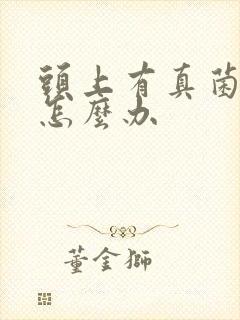 頭上有真菌
怎麼办
董金獅